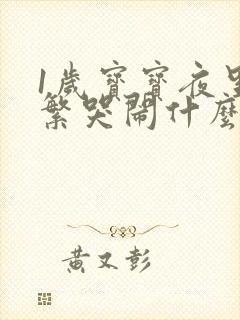 1歲寶寶夜里
繁哭鬧什麼
黃又彭